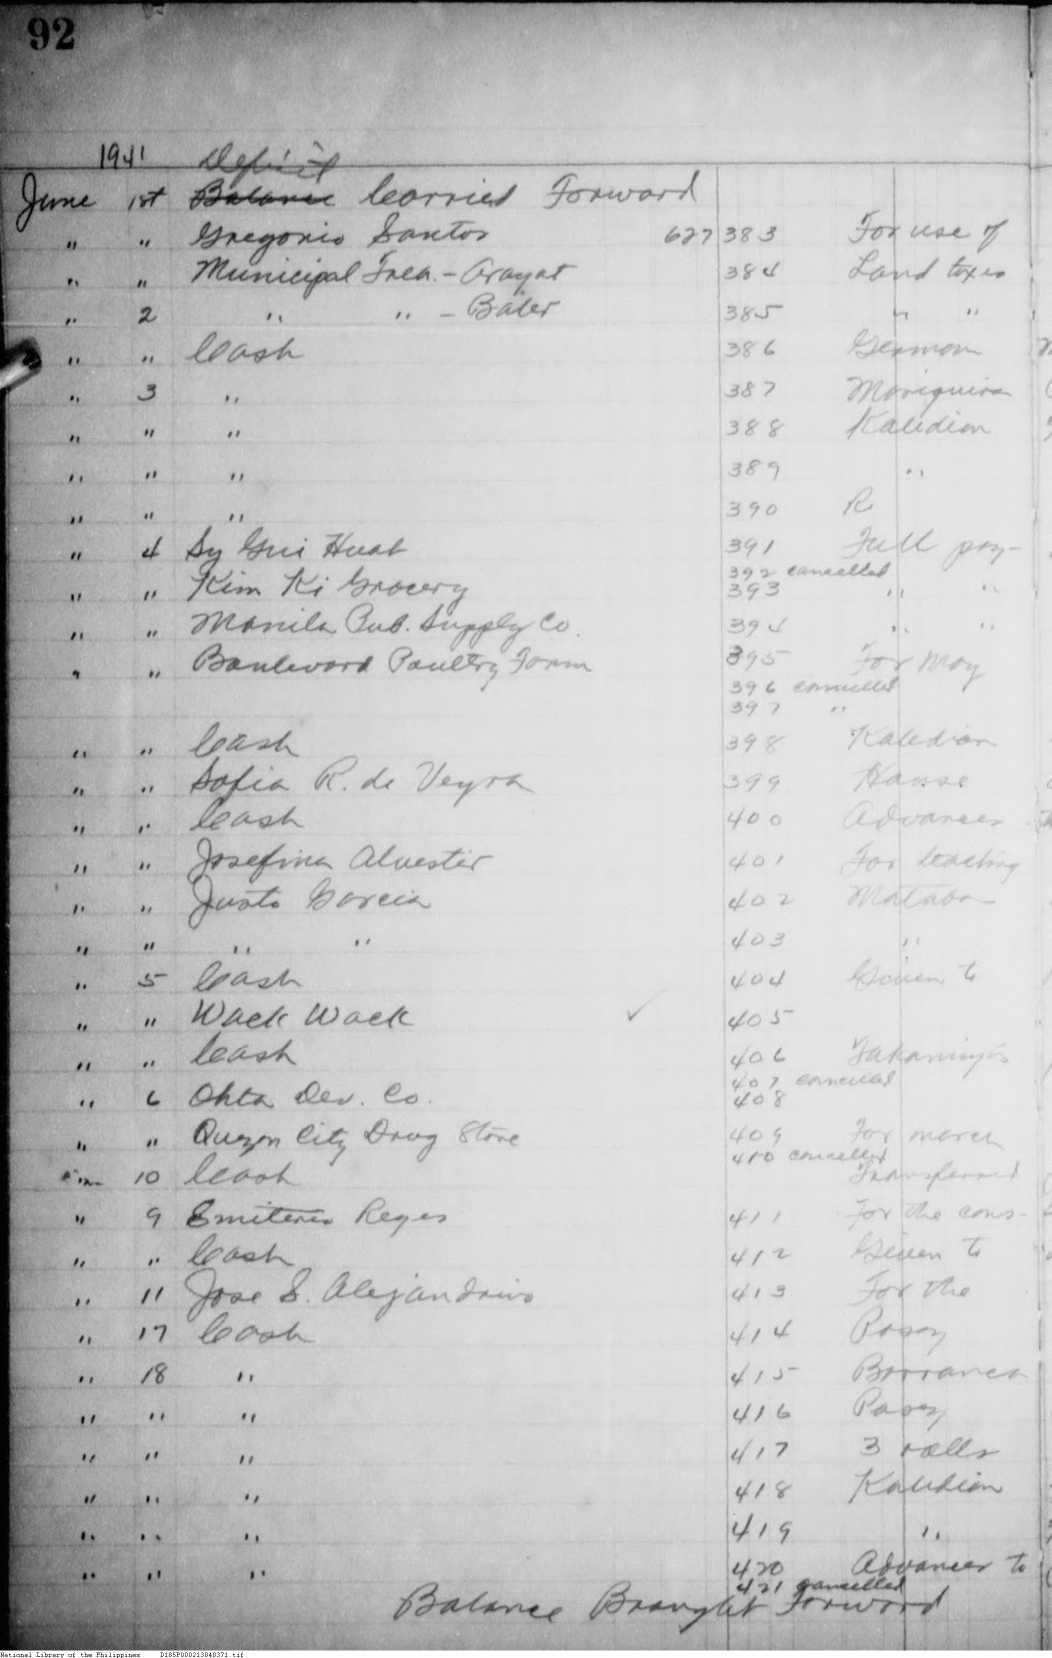 92
1941 Deficit
June 1st Balance Carried Forward
" " Gregorio Santos 627383 For use of
" " Municipal Trea. - Arayat 384 Land taxes
" 2 " " - Baler 385 " "
" " Cash 386
" 3 " 387
" " " 388 Kaledian
" " " 389 "
" " " 390 R
" 4 Sy Gui Huat 391 Full pay-
392 cancelled
" " Kim Ki Grocery 393 " "
" " Manila Pub. Supply Co. 394 " "
" " Boulevard Poultry Farm 395 For May
396 cancelled
397 "
" " Cash 398 Kaledian
" " Sofia R. de Veyra 399 House
" " Cash 400 Advances
" " Josefina Alvester 401 For teaching
" " Justo Garcia 402
" " " " 403 "
" 5 Cash 404 Given to
" " Wack Wack ✓ 405
" " Cash 406
407 cancelled
" 6 Ohta Dev. Co. 408
" " Quezon City Drug Store 409 For march
410 cancelled
" 10 Cash Transferred
" 9 Emiterio Reyes 411 For the cons-
" " Cash 412 Given to
" 11 Jose S. Alejandrino 413 For the
" 17 Cash 414 Pasay
" 18 " 415 Barranca
" " " 416 Pasay
" " " 417 3 rolls
" " " 418 Kaledian
" " " 419 "
" " " 420 Advances to
421 cancelled
Balance Brought Forward
National Library of the Philippines D185P000213840371.tif